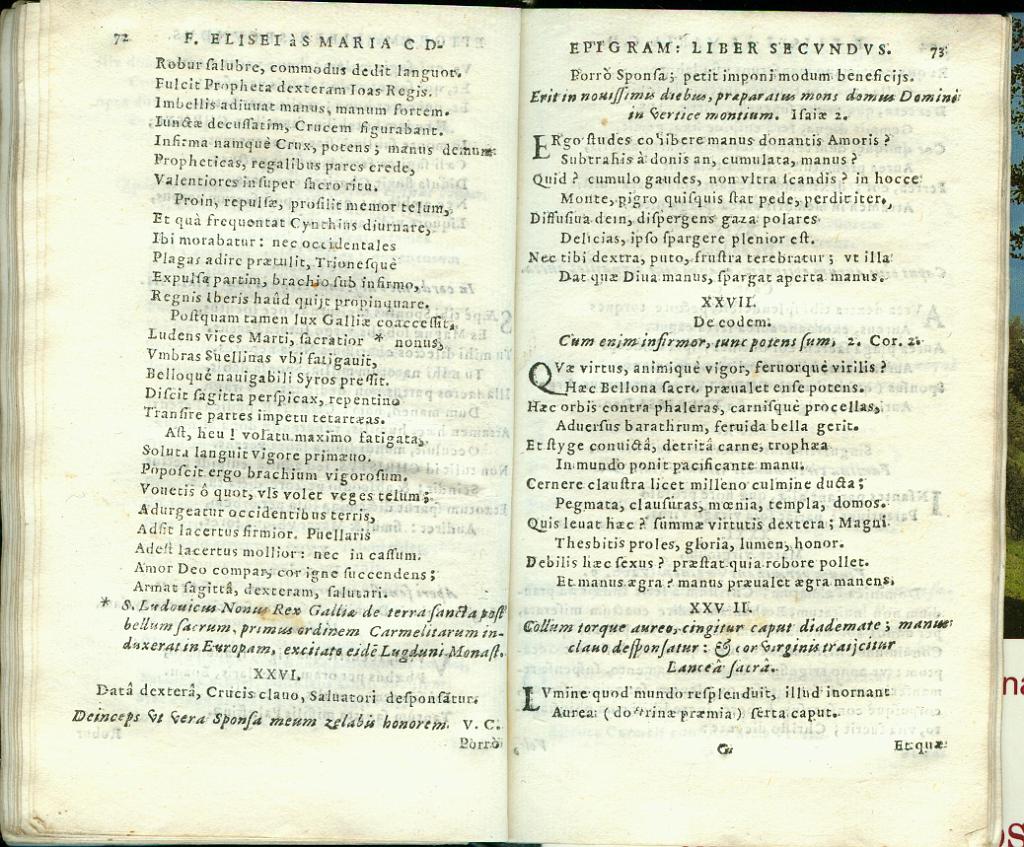 72 F. ELISEI à S MARIA C D.
Robur salubre, commodus dedit languor.
Fulcit Propheta dexteram Ioas Regis.
Imbellis adiuuat manus, manum fortem.
Iunctæ decussatim, Crucem figurabant.
Infirma namquè Crux, potens; manus demum
Propheticas, regalibus pares crede,
Valentiores insuper sacro ritu.
Proin, repulsæ, prosilit memor telum,
Et quà frequentat Cynthius diurnare,
Ibi morabatur: nec occidentales
Plagas adire prætulit, Trionesquè
Expulsa partim, brachio sub infirmo,
Regnis Iberis haûd quijt propinquare.
Postquam tamen lux Galliæ coaccessit,
Ludens vices Marti, sacratior * nonus,
Vmbras Suellinas vbi fatigauit,
Belloquè nauigabili Syros pressit.
Discit sagitta perspicax, repentino
Transire partes impetu tetartæas.
Ast, heu! volatu maximo fatigata,
Soluta languit vigore primæuo.
Poposcit ergo brachium vigorosum.
Vouetis ô quot, vls volet veges telum;
Adurgeatur occidentibus terris,
Adsit lacertus firmior. Puellaris
Adest lacertus mollior: nec in cassum.
Amor Deo compar, cor igne succendens;
Armat sagittâ, dexteram, salutari.
* S. Ludouicus Nonus Rex Galliæ de terra sancta post
bellum sacrum, primus ordinem Carmelitarum in-
duxerat in Europam, excitato eidē Lugduni Monast.
XXVI.
Datâ dexterâ, Crucis clauo, Saluatori desponsatur.
Deinceps vt vera Sponsa meum zelabis honorem. V. C.
Porrò
EPIGRAM: LIBER SECVNDVS. 73
Porrò Sponsa; petit imponi modum beneficijs.
Erit in nouissimis diebus, præparatus mons domus Domini
in vertice montium. Isaiæ 2.
ERgo studes cohibere manus donantis Amoris?
Subtrahis à donis an, cumulata, manus?
Quid? cumulo gaudes, non vltra scandis? in hocce
Monte, pigro quisquis stat pede, perdit iter,
Diffusiua dein, dispergens gaza polares
Delicias, ipso spargere plenior est.
Nec tibi dextra, puto, frustra terebratur; vt illa
Dat quæ Diua manus, spargat aperta manus.
XXVII.
De eodem.
Cum enim infirmor, tunc potens sum, 2. Cor. 2.
QVæ virtus, animiquè vigor, feruorquè virilis?
Hæc Bellona sacrò prævalet ense potens.
Hæc orbis contra phaleras, carnisquè procellas,
Aduersus barathrum, feruida bella gerit.
Et styge conuictâ, detritâ carne, trophæa
In mundo ponit pacificante manu.
Cernere claustra licet milleno culmine ducta;
Pegmata, clausuras, mœnia, templa, domos.
Quis leuat hæc? summæ virtutis dextera; Magni
Thesbitis proles, gloria, lumen, honor.
Debilis hæc sexus? præstat quia robore pollet.
Et manus ægra? manus præualet ægra manens.
XXV II.
Collum torque aureo, cingitur caput diademate; manus
clauo desponsatur: & cor virginis traijcitur
Lanceâ sacrâ.
LVmine quod mundo resplenduit, illud inornant
Aurea: (doctrinæ præmia) serta caput.
G Et quæ